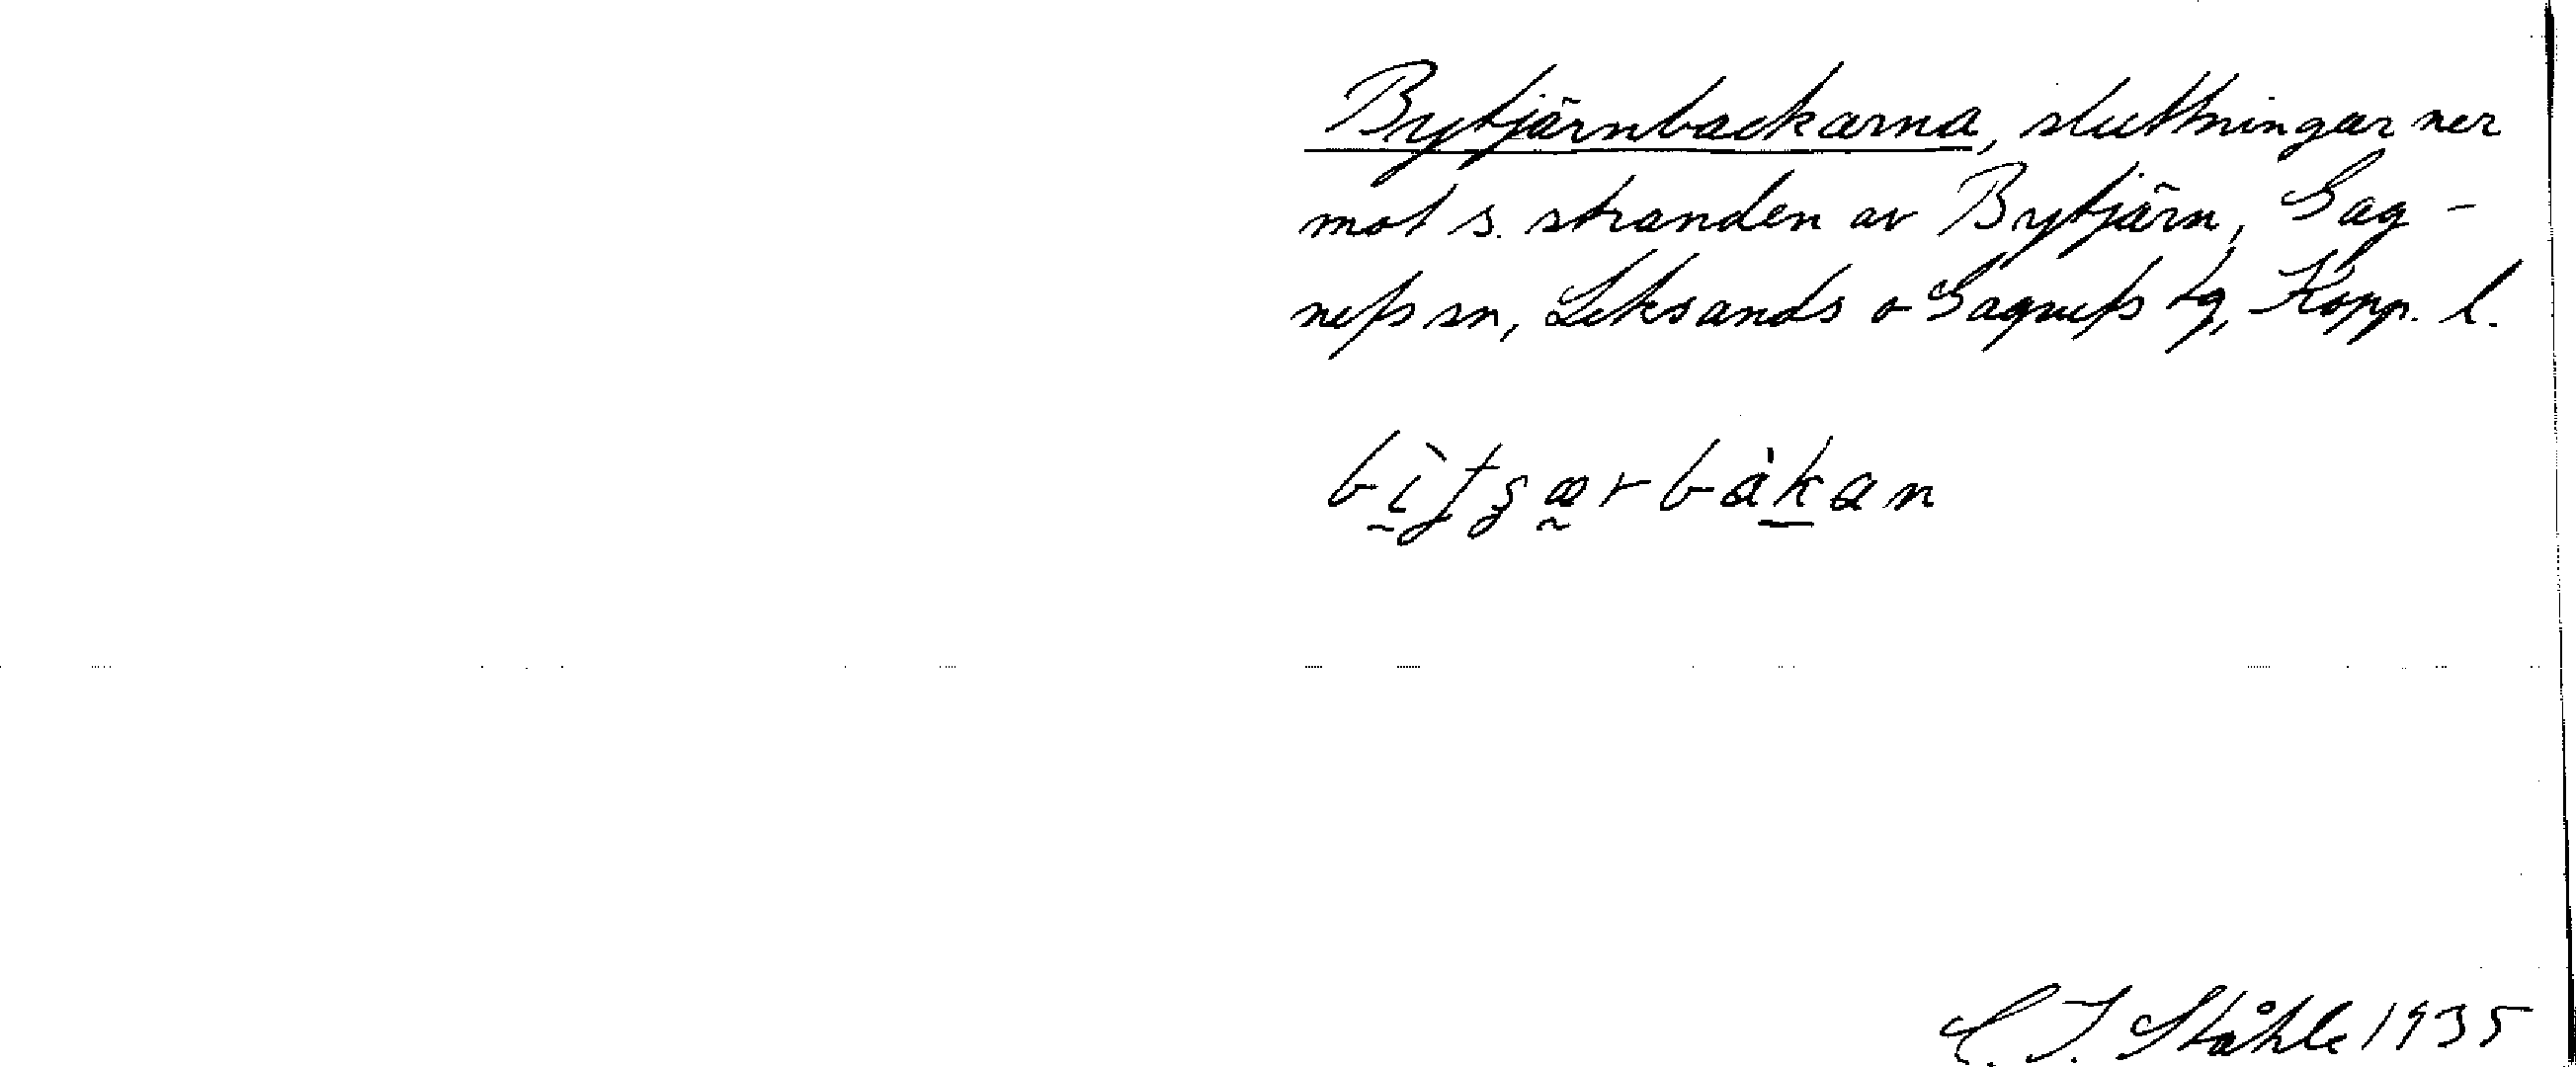 Bytjärnbackarna, sluttningar ner
mot s. stranden av Bytjärn, Gag-
nefs sn, Leksands o Gagnefs tg, Kopp. l.
C. I. Ståhle 1935